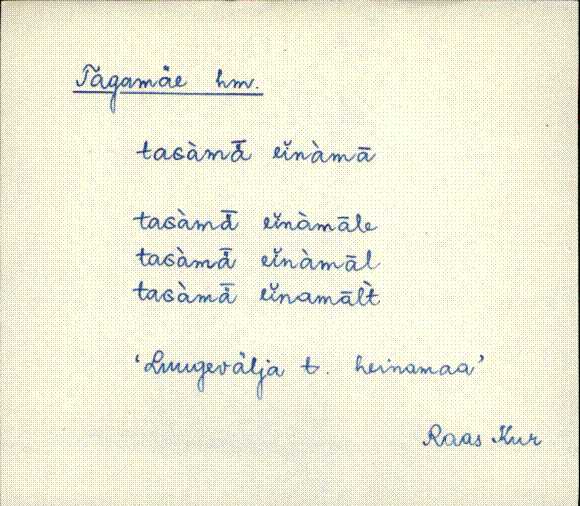 Tägamäe hm.
taɢàmǟ eĭnàmā
taɢàmǟ eĭnàmāle
taɢàmǟ eĭnàmāl
taɢàmǟ eĭnamāl̀t
‘Luugevälja t. heinamaa’
Raas Kur